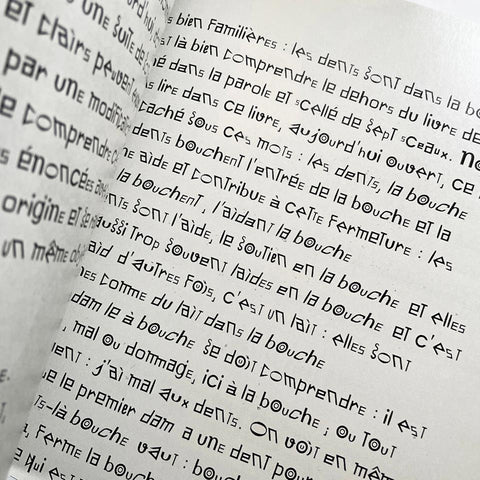 ourd'hui, l
s une suite de
et clairs peuvent
par une modifi
e comprendre
s énoncées
origine et se
un même
s bien familières : les dents sont dans la bo
t là bien comprendre le dehors du livre de
é dans la parole et scellé de sept sceaux. No
s lire dans ce livre, aujourd'hui ouvert, ce
caché sous ces mots : les dents, la bouche
dents bouchent l'entrée de la bouche et la
e aide et contribue à cette fermeture : les
la bouchent, l'aidant la bouche
nts sont l'aide, le soutien en la bouche et elles
aussi trop souvent laides en la bouche et c'est
aid d'autres fois, c'est un lait : elles sont
es comme du lait dans la bouche
dam le à bouche se doit comprendre : il est
, mal ou dommage, ici à la bouche ; ou tout
ent : j'ai mal aux dents. On voit en même
e le premier dam a une dent pour
ts-là bouche vaut : bouc
, ferme la bouche
e qui est